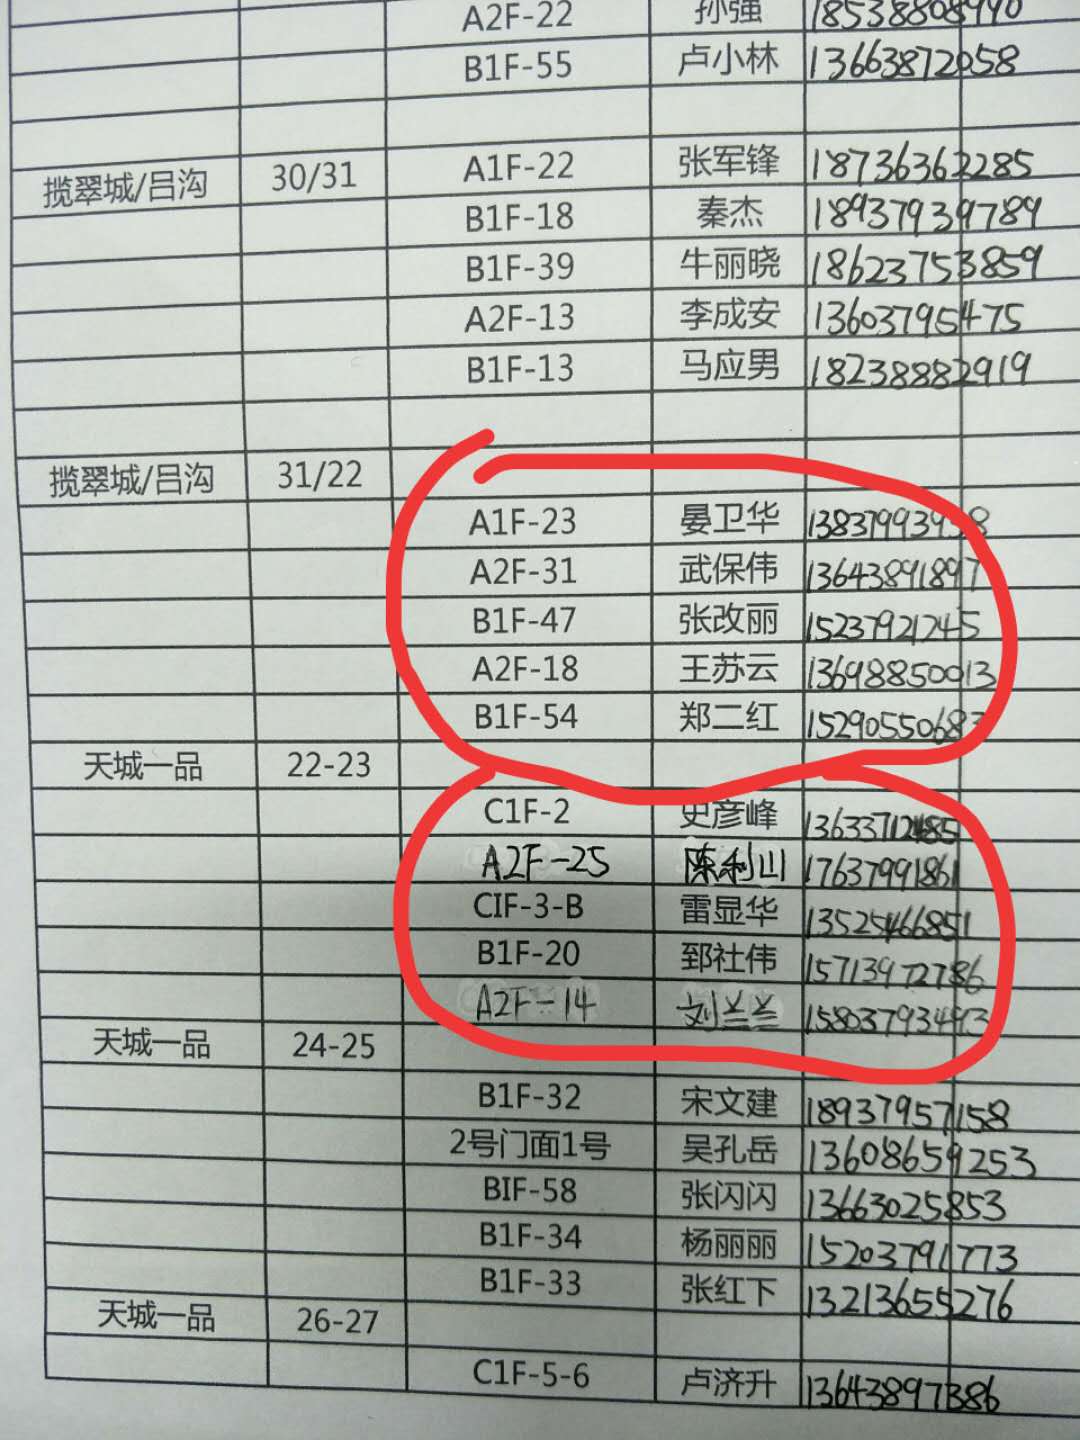 A2F-22 孙强 18538808990
B1F-55 卢小林 13663872058
揽翠城/吕沟 30/31 A1F-22 张军锋 18736362285
B1F-18 秦杰 18937939789
B1F-39 牛丽晓 18623753859
A2F-13 李成安 13603795475
B1F-13 马应男 18238882919
揽翠城/吕沟 31/22
A1F-23 晏卫华
A2F-31 武保伟 13643891897
B1F-47 张改丽 15237921245
A2F-18 王苏云 13698850013
B1F-54 郑二红 15290550683
天城一品 22-23
C1F-2 史彦峰 13633712485
A2F-25 陈利山 17637991861
CIF-3-B 雷显华 13525466851
B1F-20 郅社伟 15713972786
A2F-14 刘兰兰 15803793493
天城一品 24-25
B1F-32 宋文建 18937957158
2号门面1号 吴孔岳 13608659253
BIF-58 张闪闪 13663025853
B1F-34 杨丽丽 15203791773
B1F-33 张红下 13213655276
天城一品 26-27
C1F-5-6 卢济升 13643897386